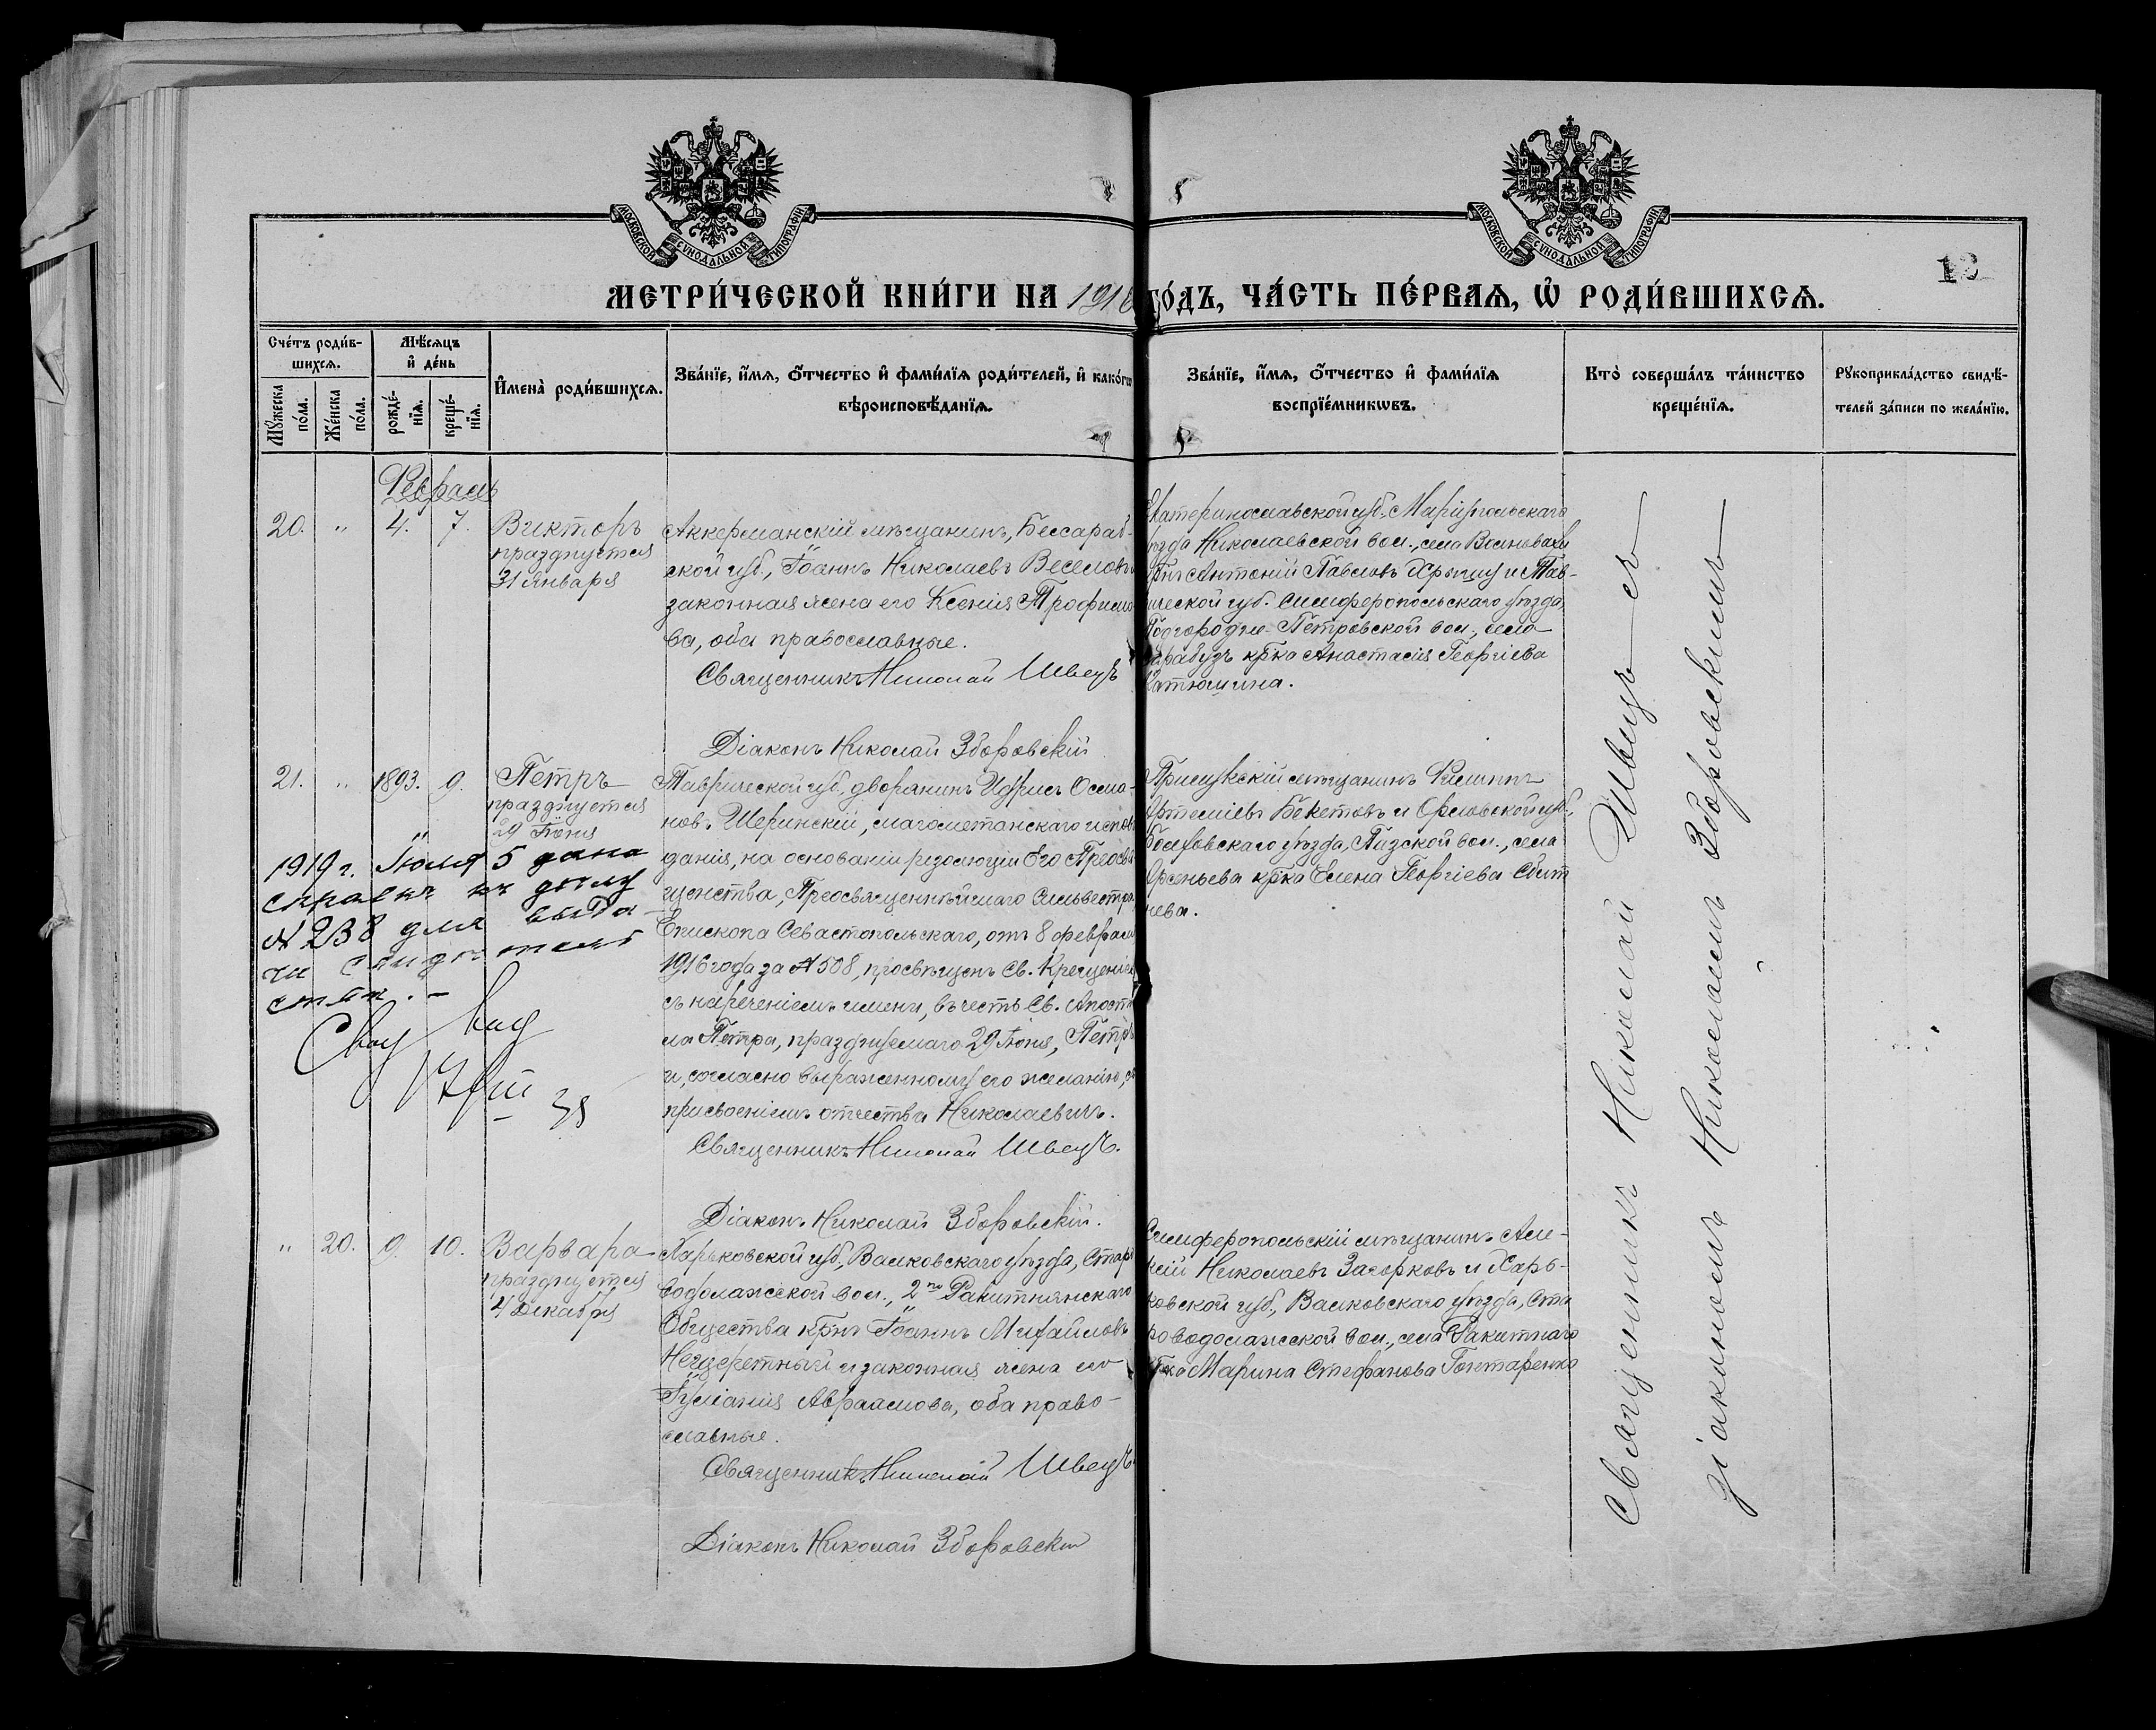 МОСКОВСКОЙ СѴНОДАЛЬНОЙ ТИПОГРАФІИ
МОСКОВСКОЙ СѴНОДАЛЬНОЙ ТИПОГРАФІИ
МЕТРИ́ЧЕСКОЙ КНИ́ГИ НА 1916 ГО́ДЪ, ЧА́СТЬ ПЕ́РВАѦ, Ѡ҆ РОДИ́ВШИХСѦ.
Сче́тъ роди́в-
шихсѧ.
Мꙋ́жеска по́ла.
Же́нска по́ла.
Мѣ́сѧцъ
и҆ де́нь
рожде́-
нїѧ.
креще́-
нїѧ.
И҆мена̀ роди́вшихсѧ.
Зва́нїе, и҆́мѧ, ѻ҆́тчество и҆ фами́лїѧ роди́телей, и҆ како́гѡ
вѣроисповѣ́данїѧ.
Зва́нїе, и҆́мѧ, ѻ҆́тчество и҆ фами́лїѧ
воспрїе́мникѡвъ.
Кто̀ соверша́лъ та́инство
креще́нїѧ.
Рꙋкоприкла́дство свидѣ́-
телей за́писи по жела́нїю.
Февраль
20. " 4. 7.
Викторъ
празднуется
31 Января
Аккерманскій мѣщанинъ, Бессараб-
ской губ., Іоаннъ Николаевъ Веселовъ
законная жена его Ксенія Трофимо
ва, оба православные.
Священникъ Николай Швецъ
Діаконъ Николай Зборовскій
Екатеринославской губ. Маріупольскаго
уѣзда Николаевской вол., села Волновахи
крнъ Антоній Павловъ Хрыщу и Тав-
рической губ. Симферопольскаго уѣзда,
Подгородне-Петровской вол., села
Сарабузъ крка Анастасія Георгіева
Катюшина.
21. " 1893. 9.
"
Петръ
празднуется
29 Іюня
Таврической губ., дворянинъ Идрисъ Осма-
новъ Ширинскій, магометанскаго исповѣ
данія, на основаніи резолюціи Его Преосвя
щенства, Преосвященнѣйшаго Сильвестра,
Епископа Севастопольскаго, отъ 8 февраля
1916 года за № 508, просвѣщенъ Св. Крещеніемъ
съ нареченіемъ имени, въ честь Св. Апосто
ла Петра, празднуемаго 29 Іюня, Петръ
и, согласно выраженному его желанію, съ
присвоеніемъ отчества Николаевичъ.
Священникъ Николай Швецъ.
Діаконъ Николай Зборовскій.
Прилукскій мѣщанинъ Филиппъ
Артеміевъ Бекетовъ и Орловской губ.,
Болховскаго уѣзда, села
Арсеньева крка Елена Георгіева Сбит
нева.
1919 г. Іюля 5 дана
справка къ дѣлу
№ 238 для выда-
чи свидѣтель
ства. -
" 20. 9. 10.
Варвара
празднуется
4 Декабря
Харьковской губ., Валковскаго уѣзда, Старо
водолажской вол., 2го Ракитнянскаго
Общества крнъ Іоаннъ Михайловъ
Нещеретный и законная жена его
Іуліанія Авраамова, оба право-
славные.
Священникъ Николай Швецъ
Діаконъ Николай Зборовскій
Симферопольскій мѣщанинъ Але-
ксій Николаевъ Загорковъ и Харь-
ковской губ., Валковскаго уѣзда, Ста
роводолажской вол., села Ракитнаго
крка Марина Стефанова Гонтаренко
Священникъ Николай Швецъ съ
діакономъ Николаемъ Зборовскимъ